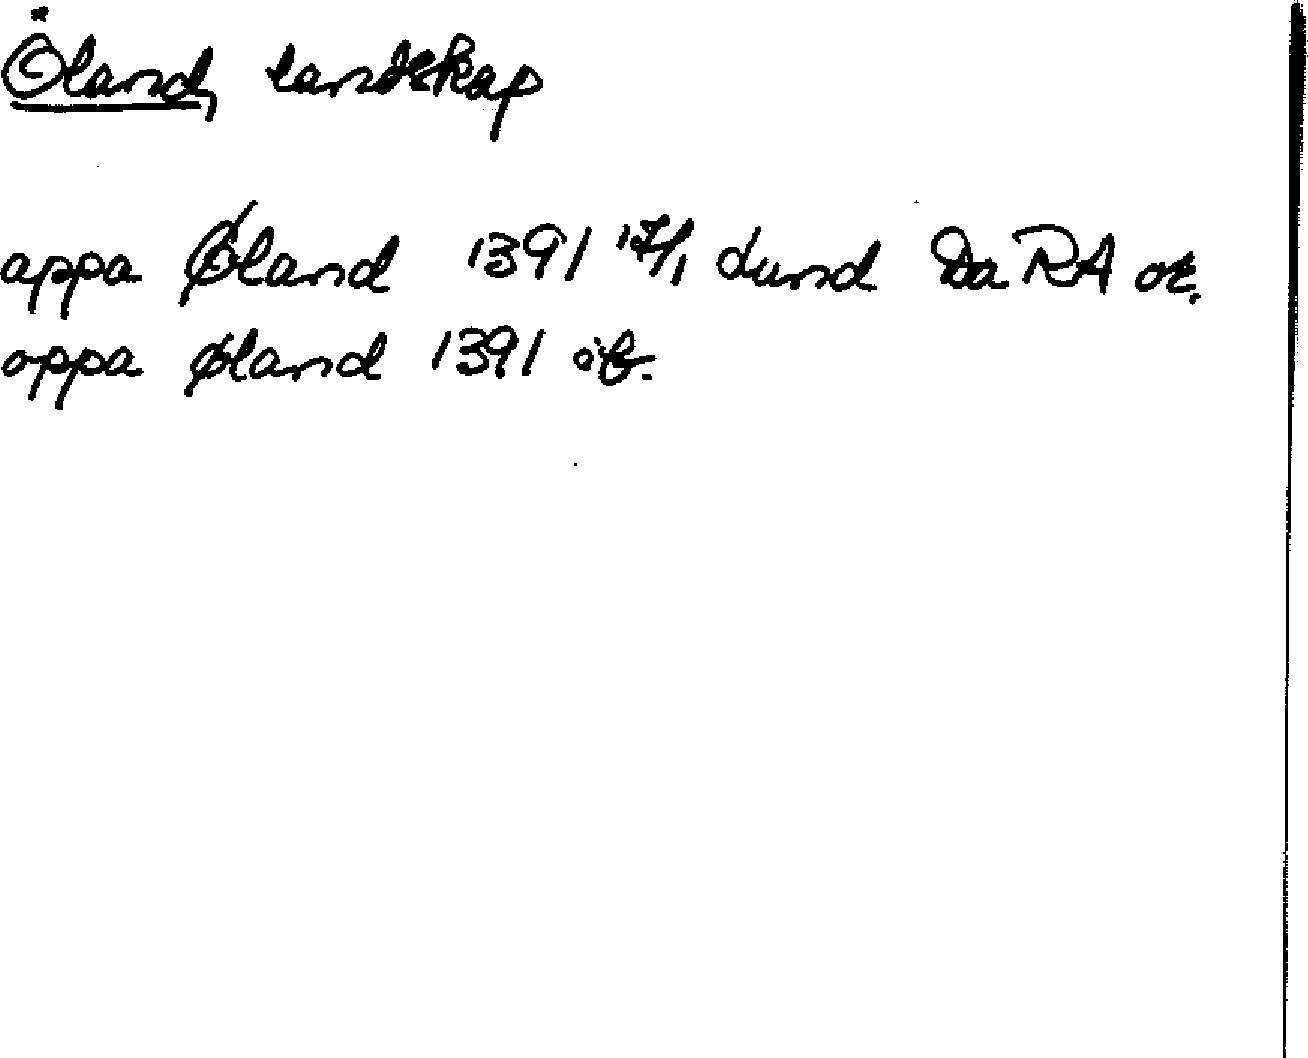 Öland, landskap
appa Øland 1391 17/1 Lund Da RA or.
oppa Øland 1391 ib.